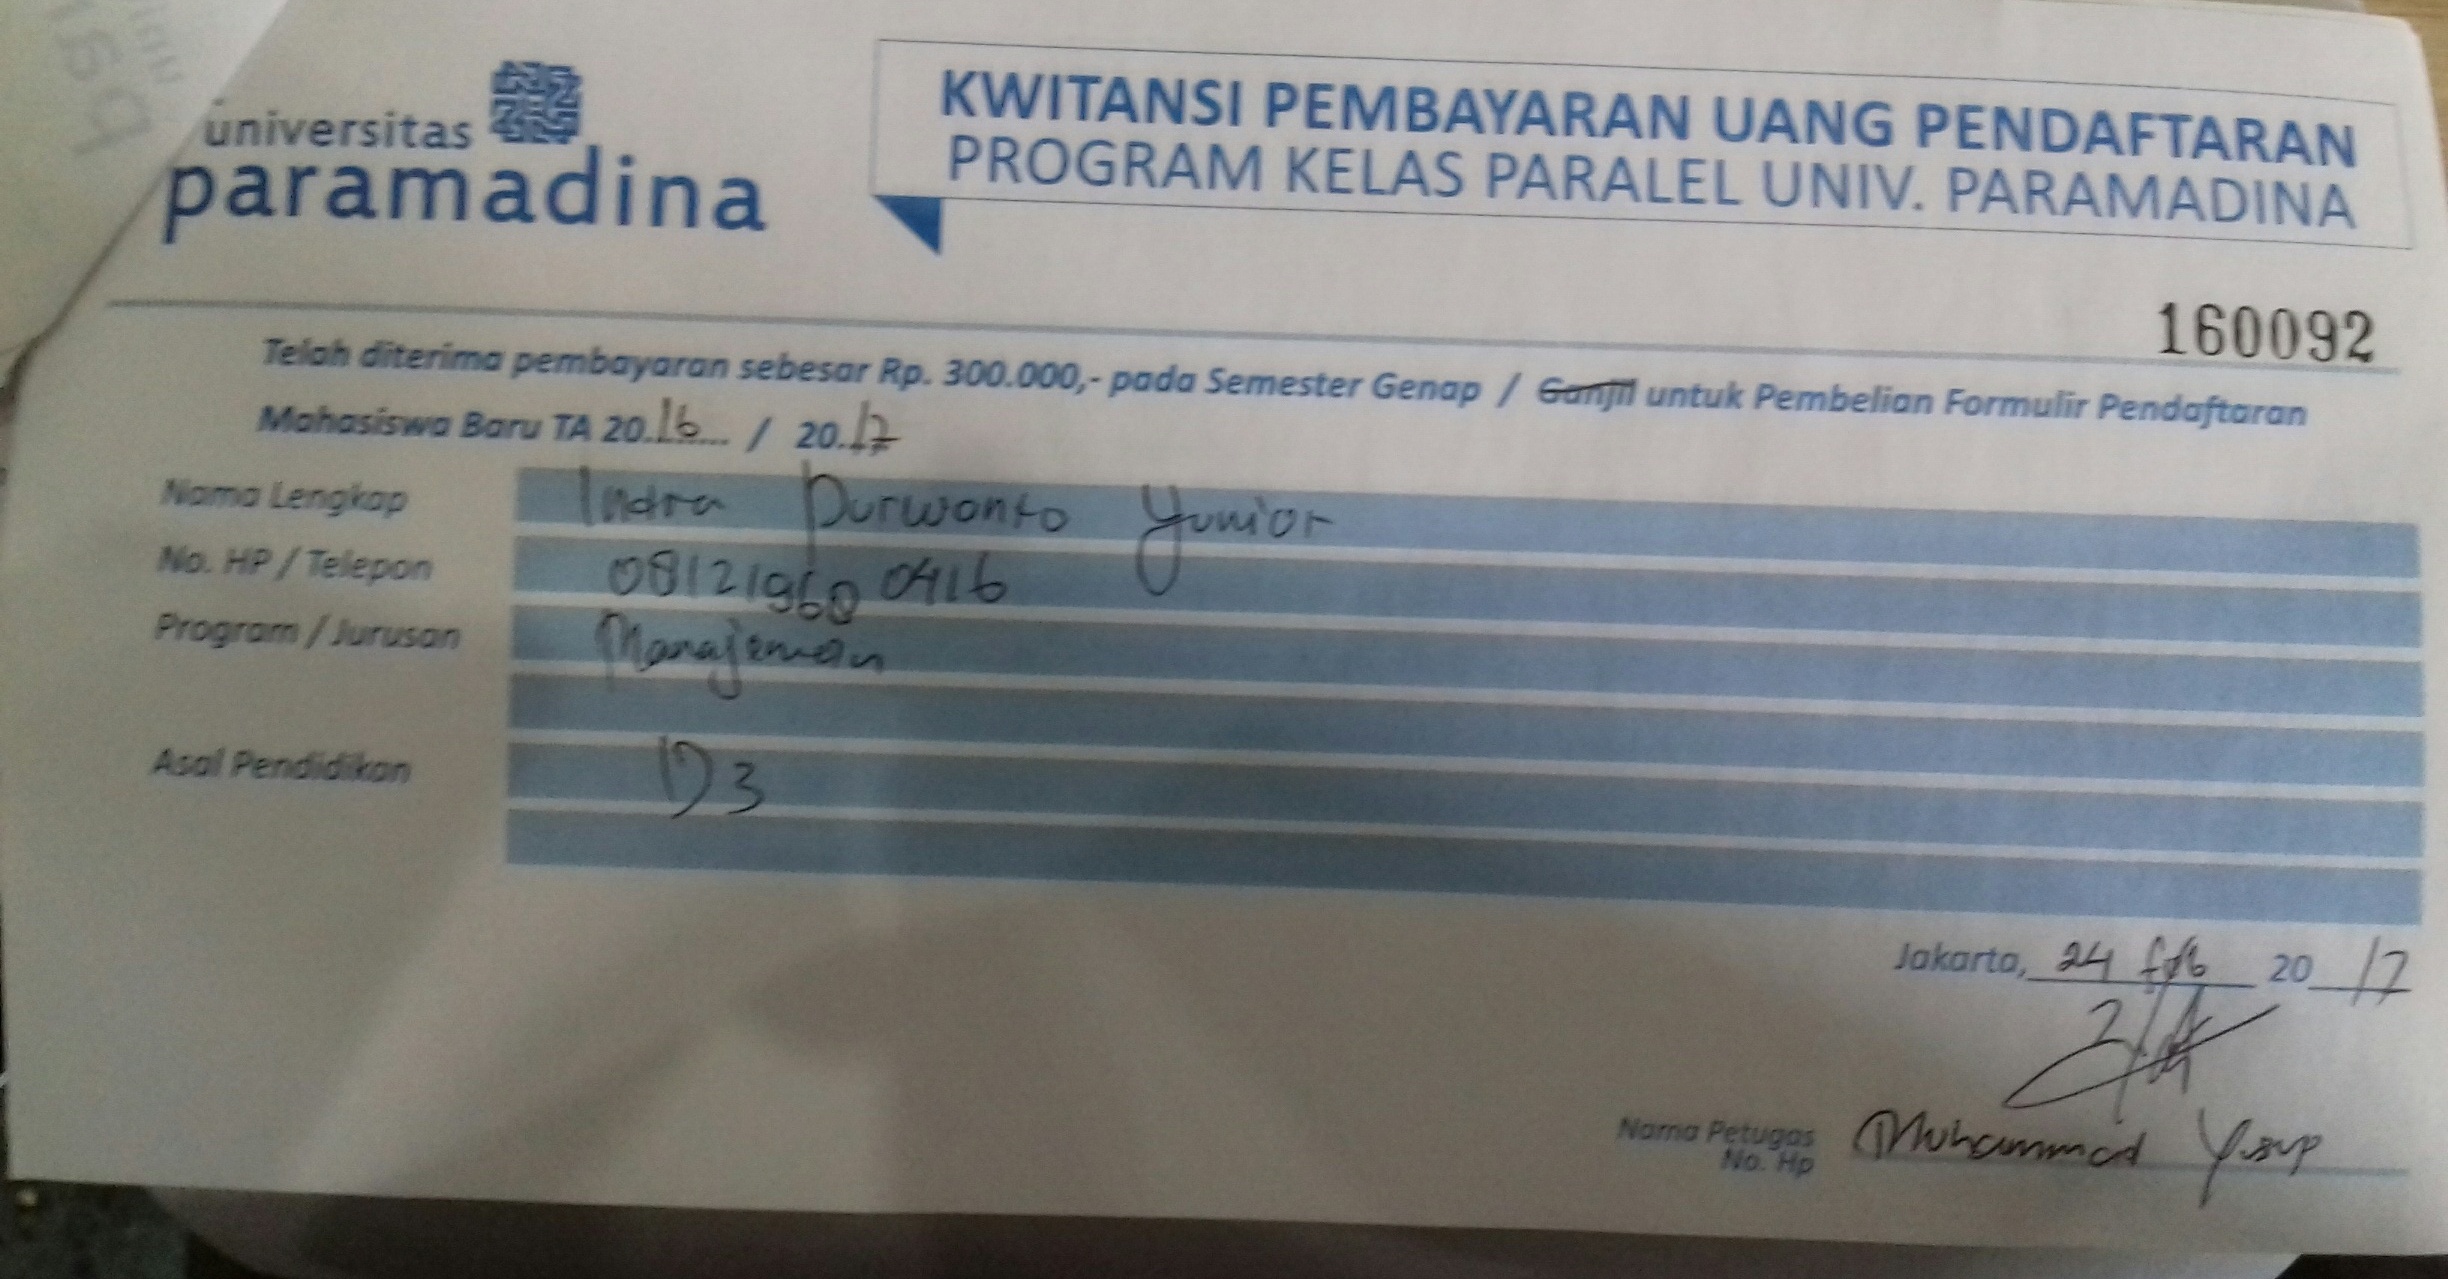 universitas
paramadina
KWITANSI PEMBAYARAN UANG PENDAFTARAN
PROGRAM KELAS PARALEL UNIV. PARAMADINA
160092
Telah diterima pembayaran sebesar Rp. 300.000,- pada Semester Genap / Ganjil untuk Pembelian Formulir Pendaftaran
Mahasiswa Baru TA 20.16... / 20.17
Nama Lengkap Indra Purwanto Yunior
No. HP / Telepon 081219600416
Program / Jurusan Manajemen
Asal Pendidikan D3
Jakarta, 24 Feb 20 17
Nama Petugas Muhammad Yusup
No. Hp